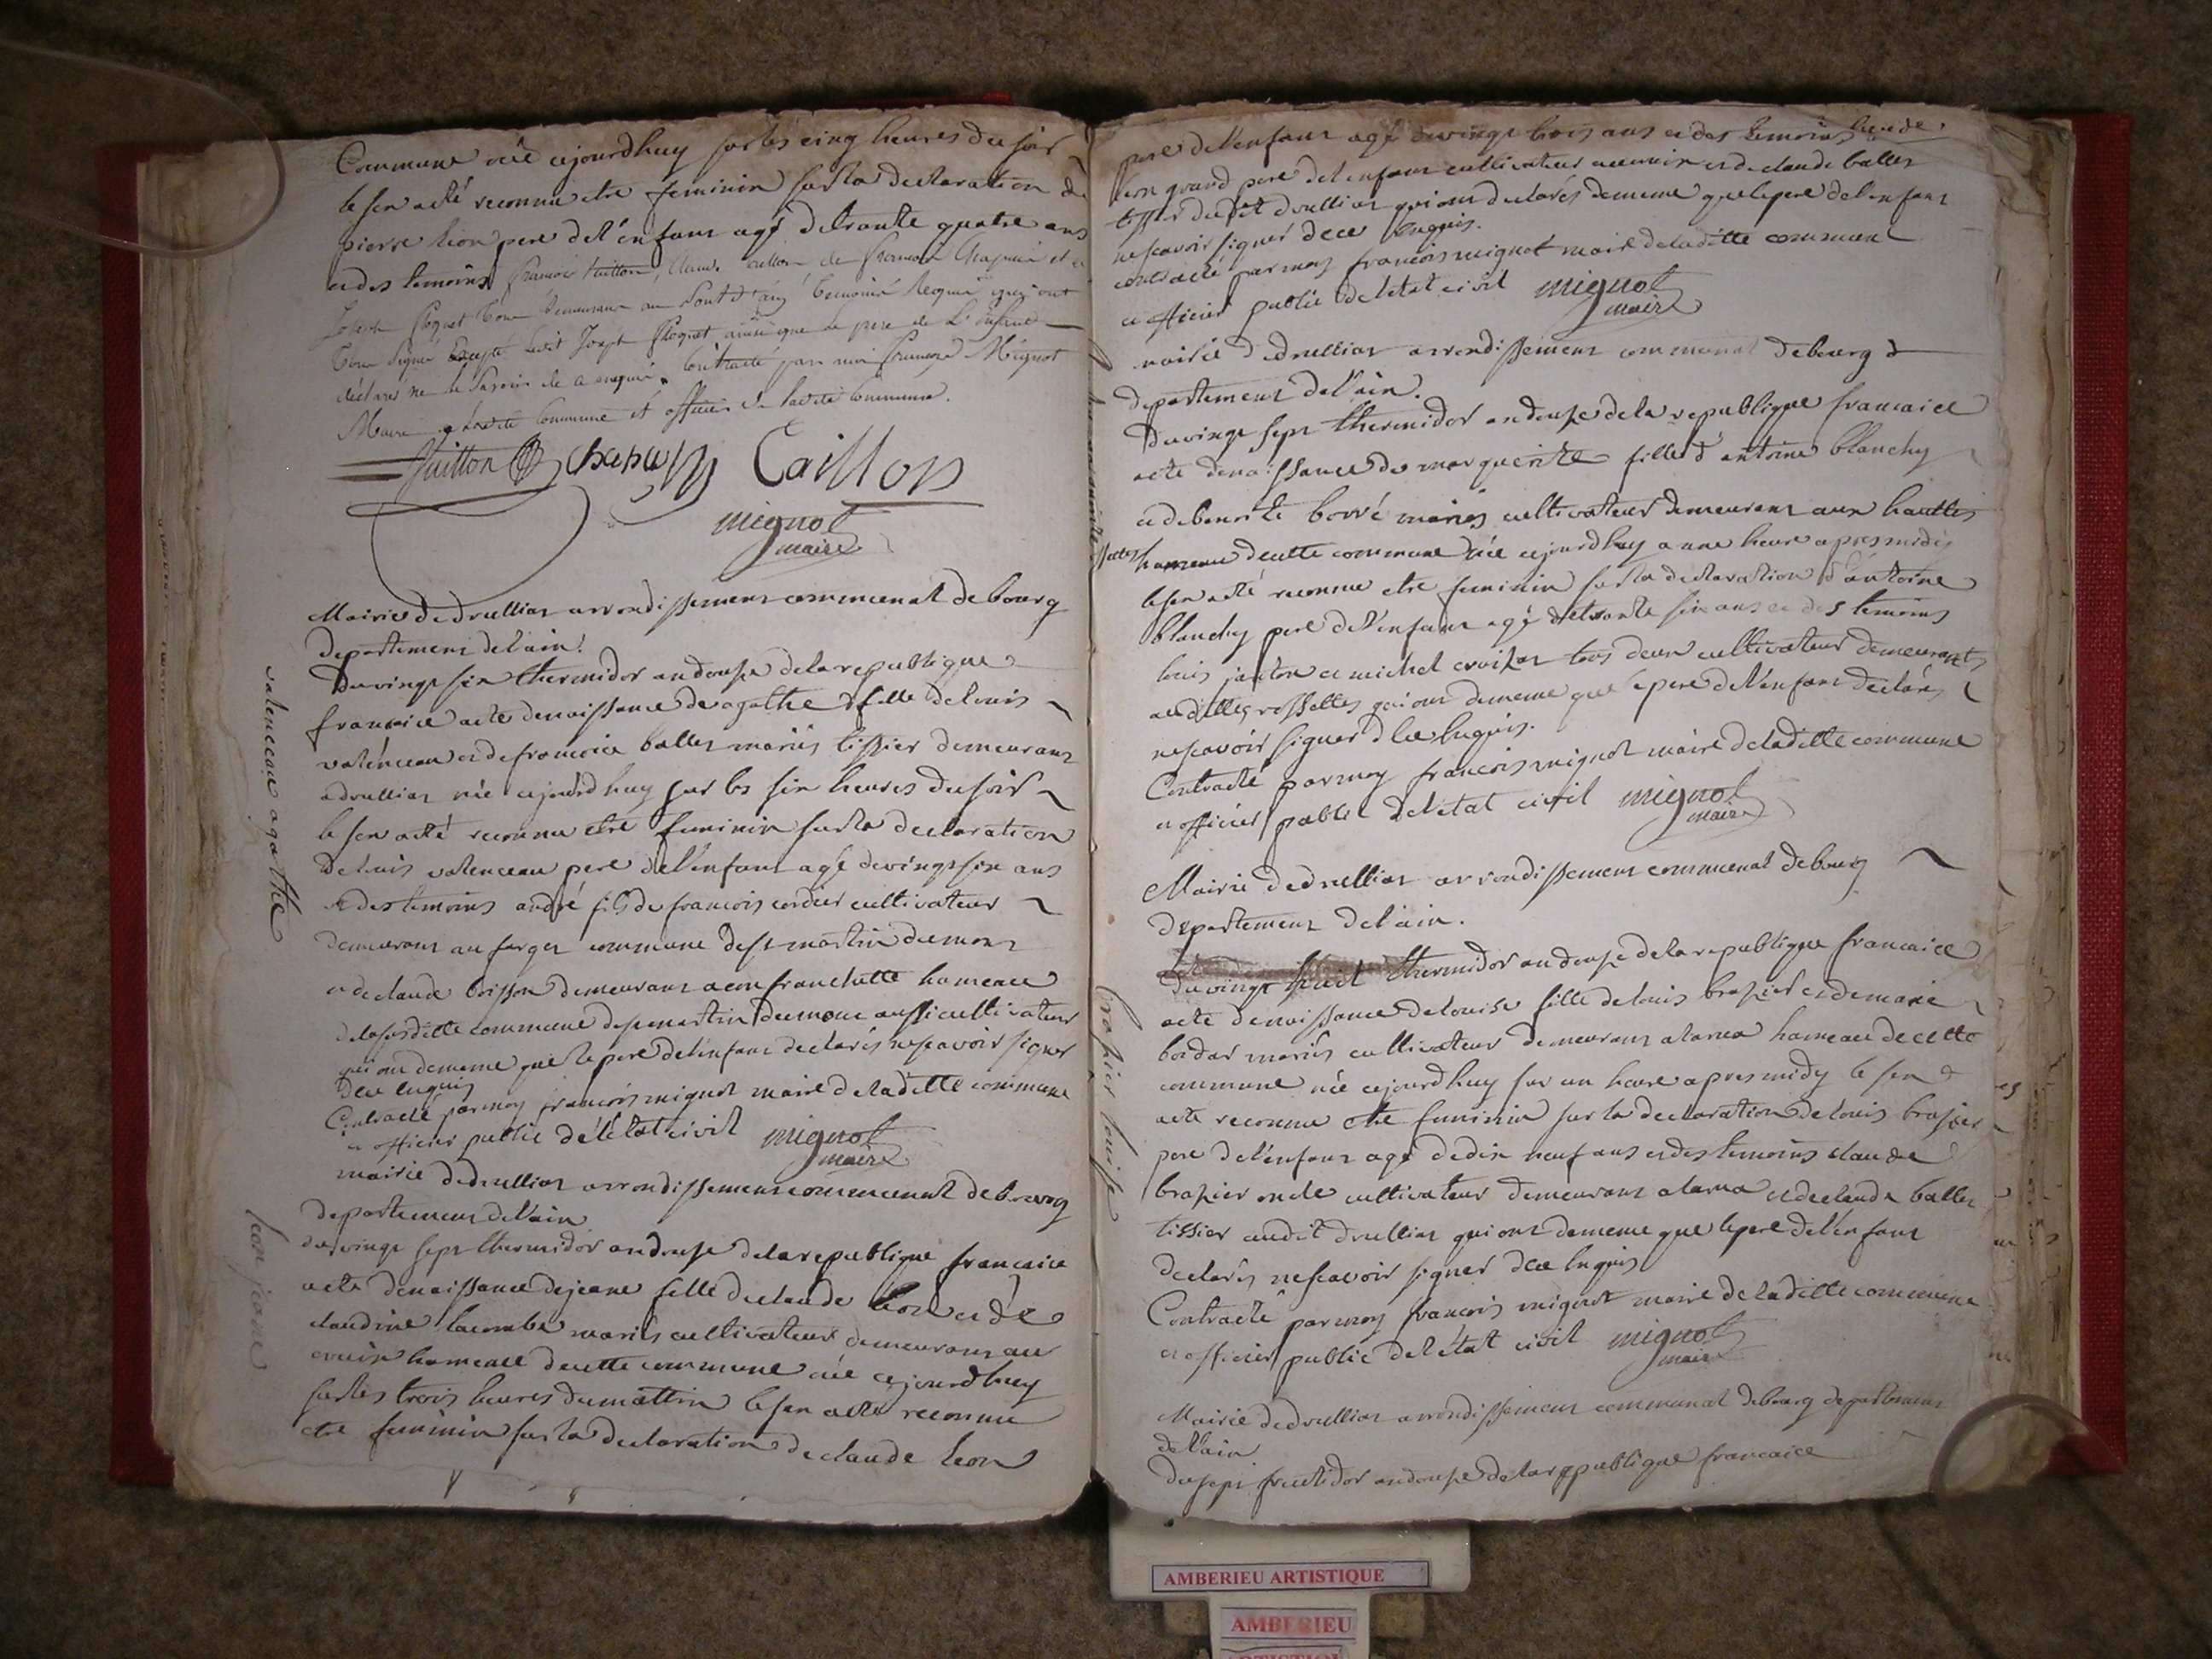 Commune née cejourdhuy sur les cinq heures du soir
le sexe acté reconnu etre feminin sur la declaration de
pierre leon pere de l'enfant agé de trante quatre ans
et des temoins francois Vuitton, de francois Chapuis et
Joseph demeurant au Pont d'ain temoins requis qui ont
tous signé Excepté ledit Joseph ainsi que le pere de L'enfant
déclaré ne le Savoir de ce enquis. Contracté par moi francois Mignot
Maire de ladite Commune et officier de ladite Commune.
Vuitton Chapuis Caillon
mignot
maire
Mairie de druilliat arrondissement communal de bourg
departement de l'ain.
du vingt six thermidor an douse de la republique
francaice acte de naissance de agathe fille de louis
valenceau et de francoice ballet mariés tissier demeurant
a druilliat née cejourdhuy sur les six heures du soir
le sexe acté reconnu etre feminin sur la declaration
de louis valenceau pere de l'enfant agé de vingt six ans
et des temoins andré fils de francois cordier cultivateur
demeurant au farget commune de st martin du mont
et de claude boisson demeurant a confranchette hameau
de la susditte commune de st martin du mont aussi cultivateur
qui ont de meme que le pere de l'enfant declarés ne scavoir signer
de ce enquis
Contracté par moy francois mignot maire de laditte commune
et officier public de l'état civil mignot
maire
valenceau agathe
mairie de druilliat arrondissement communal de bourg
departement de l'ain
du vingt sept thermidor an douse de la republique francaice
acte de naissance de jeane fille de claude leon et de
claudine lacombe mariés cultivateur demeurant au
cruix hameau de cette commune née cejourdhuy
sur les trois heures du mattin le sexe acté reconnu
etre feminin sur la declaration de claude leon
leon jeane
pere de l'enfant agé de vingt trois ans et des temoins claude
leon grand pere de l'enfant cultivateur au cruix et de claude ballet
tissier du dit druilliat qui ont declarés de meme que le pere de l'enfant
ne scavoir signer de ce enquis.
contracté par moy francois mignot maire de laditte commune
et officier public de l'etat civil mignot
maire
mairie de druilliat arrondissement communal de bourg
departement de l'ain.
du vingt sept thermidor an douse de la republique francaice
acte de naissance de marguerite fille d'antoine blanchy
et de benoite borré mariés cultivateur demeurant aux hauttes
hameau de cette commune née cejourdhuy a une heure apres midis
le sexe acté reconnu etre feminin sur la declaration d'antoine
blanchy pere de l'enfant agé de trante six ans et des temoins
louis janton et michel croizat tous deux cultivateur demeurants
audittes rossettes qui ont de meme que le pere de l'enfant declarés
ne scavoir signer de ce enquis.
Contracté par moy francois mignot maire de laditte commune
et officier public de l'état civil mignot
maire
Mairie de druilliat arrondissement communal de bourg
departement de l'ain.
du vingt huit thermidor an douse de la republique francaice
acte de naissance de louise fille de louis brasier et de marie
bordat mariés cultivateur demeurant a larna hameau de cette
commune née cejourdhuy sur un heure apres midy le sexe
acté reconnu etre feminin sur la declaration de louis brasier
pere de l'enfant agé de dix neuf ans et des temoins claude
brasier oncle cultivateur demeurant a larna et de claude ballet
tissier audit druilliat qui ont de meme que le pere de l'enfant
declarés ne scavoir signer de ce enquis
Contracté par moy francois mignot maire de laditte commune
et officier public de l'état civil mignot
maire
brasier louise
Mairie de druilliat arrondissement communal de bourg departement
de l'ain
du sept fructidor an douse de la republique francaice
AMBERIEU ARTISTIQUE
AMBERIEU